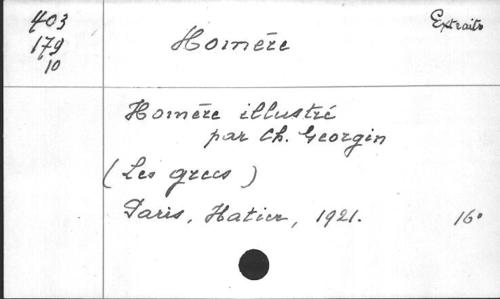 403
179
10
Extraits
Homère
Homère illustré
par Ch. Georgin
(Les grecs)
Paris, Hatier, 1921. 16°